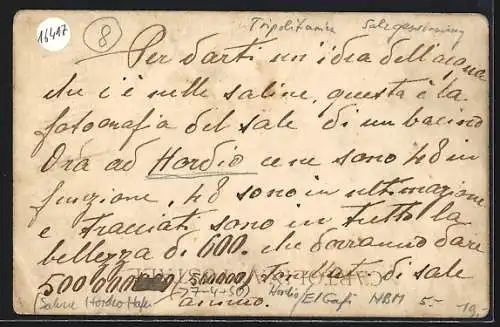 16417
8
Tripolitanien Salzgewinnung
Per darti un'idea dell'acqua
che c'è nelle saline, questa è la
fotografia del sale di un bacino
Ora ad Hordio ce ne sono 48 in
funzione, 48 sono in ultimazione
e tracciati sono in tutto la
bellezza di 600. che dovranno dare
500 000 500.000 tonellate di sale
annuo.
(27-4-30)
Hordio/ElGafi NBM 5.- 19.-